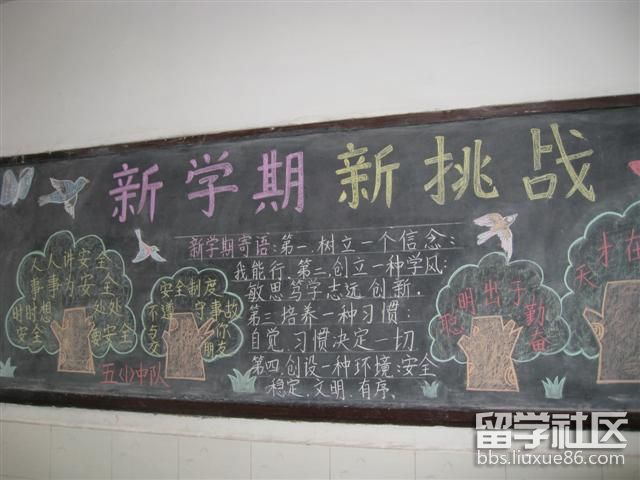 新学期 新挑战
新学期寄语:第一.树立一个信念:
我能行.第二.创立一种学风:
敏思笃学志远创新.
第三.培养一种习惯:
自觉.习惯决定一切
第四.创设一种环境:安全
稳定.文明.有序.
人人讲安全
事事为安全
时时想
处处
安全
要安全
安全制度
不遵守
事故
与你
交朋友
五(1)中队
聪明出于勤奋
天才在
留学社区
bbs.liuxue86.com